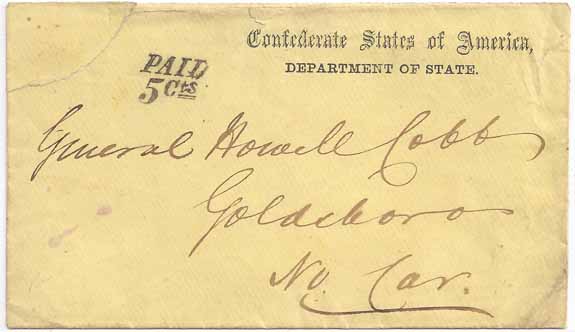 Confederate States of America,
DEPARTMENT OF STATE.
PAID
5 Cts
General Howell Cobb
Goldsboro
No. Car.